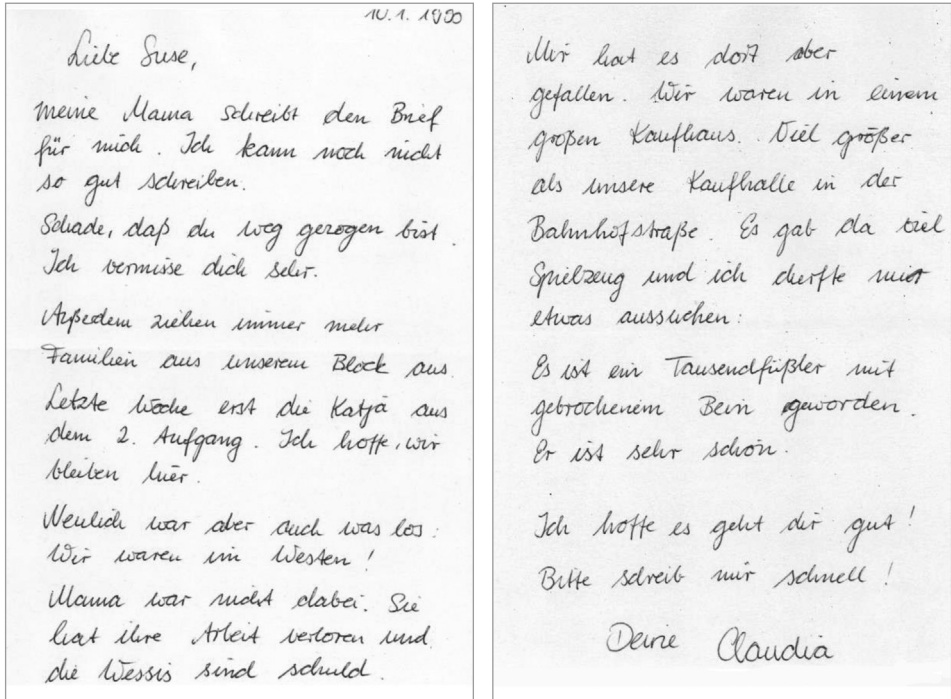 10.1.1990
Liebe Suse,
meine Mama schreibt den Brief
für mich. Ich kann noch nicht
so gut schreiben.
Schade, daß du weg gezogen bist.
Ich vermisse dich sehr.
Außerdem ziehen immer mehr
Familien aus unserem Block aus.
Letzte Woche erst die Katja aus
dem 2. Aufgang. Ich hoffe, wir
bleiben hier.
Neulich war aber auch was los:
Wir waren im Westen!
Mama war nicht dabei. Sie
hat ihre Arbeit verloren und
die Wessis sind schuld.
Mir hat es dort aber
gefallen. Wir waren in einem
großen Kaufhaus. Viel größer
als unsere Kaufhalle in der
Bahnhofstraße. Es gab da viel
Spielzeug und ich durfte mir
etwas aussuchen:
Es ist ein Tausendfüßler mit
gebrochenem Bein geworden.
Er ist sehr schön.
Ich hoffe es geht dir gut!
Bitte schreib mir schnell!
Deine Claudia